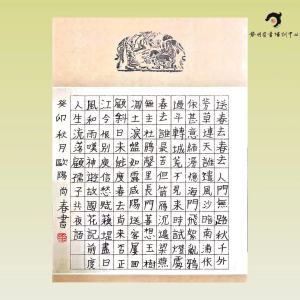 送春去春去人間無路秋千外
芳草連天誰遣風沙暗南浦依
依甚意緒漫憶海門飛絮亂鴉
過斗轉城荒不見來時試燈處
春去誰最苦但箭雁沉邊梁燕
無主杜鵑聲里長門暮想玉樹
凋土淚盤如露咸陽送客屢回
顧斜日未能度春去尚來否正
江令恨別庾信愁賦蘇堤盡日
風和雨嘆神遊故國花記前度
人生流落顧孺子共夜語
癸卯秋月歐陽尚春書